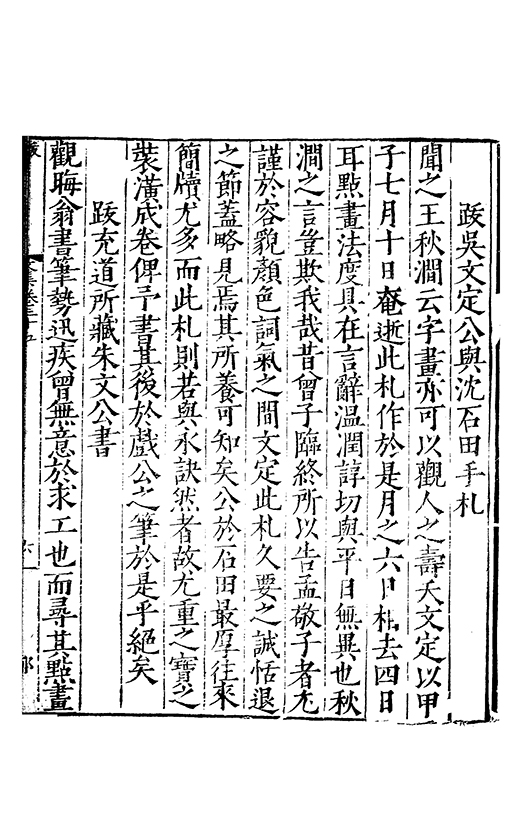 跋吳文定公與沈石田手札
聞之王秋澗云字畫亦可以觀人之壽夭文定以甲
子七月十日奄逝此札作於是月之六日相去四日
耳㸃畫法度具在言辭溫潤諄切與平日無異也秋
澗之言豈欺我哉昔曾子臨終所以告孟敬子者尤
謹於容貌顏色詞氣之間文定此札久要之誠恬退
之節蓋略見焉其所養可知矣公於石田最厚往來
簡牘尤多而此札則若與永訣然者故尤重之寶之
裝潢成卷俾予書其後於戲公之筆於是乎絕矣
跋充道所藏朱文公書
觀晦翁書筆勢迅疾曾無意於求工也而尋其㸃畫